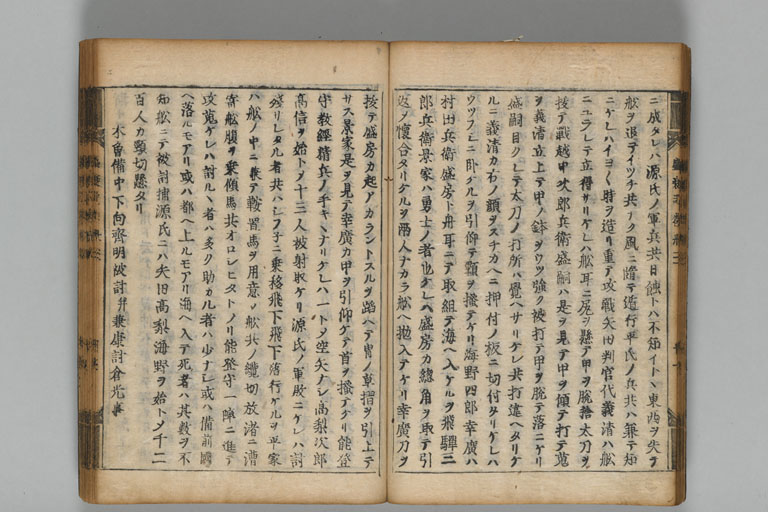 ニ成タレハ源氏ノ軍兵共日蝕トハ不知イトヽ東西ヲ失テ
舩ヲ退テイツチ共ナク風ニ随テ遁行平氏ノ兵共ハ兼テ知
ニケレハイヨ〱時ヲ造リ重テ攻戦矢田判官代義清ハ舩
ニユラレテ立得サリケレハ舩耳ニ尻ヲ懸テ甲ヲ脱捨太刀ヲ
抜テ戦越中次郎兵衛盛嗣ハ是ヲ見テ甲ヲ傾テ打テ蒐
ヲ義清立上テ甲ノ鉢ヲウツ強ク被打テ甲ヲ脱テ落ニケリ
盛嗣目クレテ太刀ノ打所ハ覺ヘサリケレ共打違ヘタリケ
ルニ義清カ右ノ頬ヲスチカヘニ押付ノ板ニ切付タリケレハ
ウツフシニ臥ケルヲ引仰テ頸ヲ掻テケリ海野四郎幸廣ハ
村田兵衛盛房ト舟耳ニテ取組テ海ヘ入ケルヲ飛騨三
郎兵衛景家ハ勇士ノ者也ケレハ盛房カ總角ヲ取テ引
返ヲ懐合タリケルヲ兩人ナカラ舩ヘ抛入テケリ幸廣刀ヲ
抜テ盛房カ起アカラントスルヲ蹈ヘテ冑ノ草摺ヲ引上テ
サス景家是ヲ見テ幸廣カ甲ヲ引仰ケテ首ヲ掻テケリ能登
守教經精兵ノ手キヽナリケレハ一トメ空矢ナシ高梨次郎
高信ヲ始トメ十三人被射取ケリ源氏ノ軍敗ニケレハ討
殘リシタル者共ハシフ子ニ乗移飛下飛下落行ケルヲ平家
ハ舩ノ中ニ兼テ鞍置馬ヲ用意メ舩共ノ纜切放渚ニ漕
寄舩腹ヲ乗傾馬共オロシヒタトノリ能登守一陣ニ進テ
攻蒐ケレハ討ルヽ者ハ多ク助カル者ハ少ナシ或ハ備前國
ヘ落ルモアリ或ハ都ヘ上ルモアリ海ヘ入テ死者ハ其數ヲ不
知舩ニテ被討捕源氏ニハ矢田高梨海野ヲ始トメ千二
百人カ頸切懸タリ
木曽備中下向齊明被討并兼康討倉光事